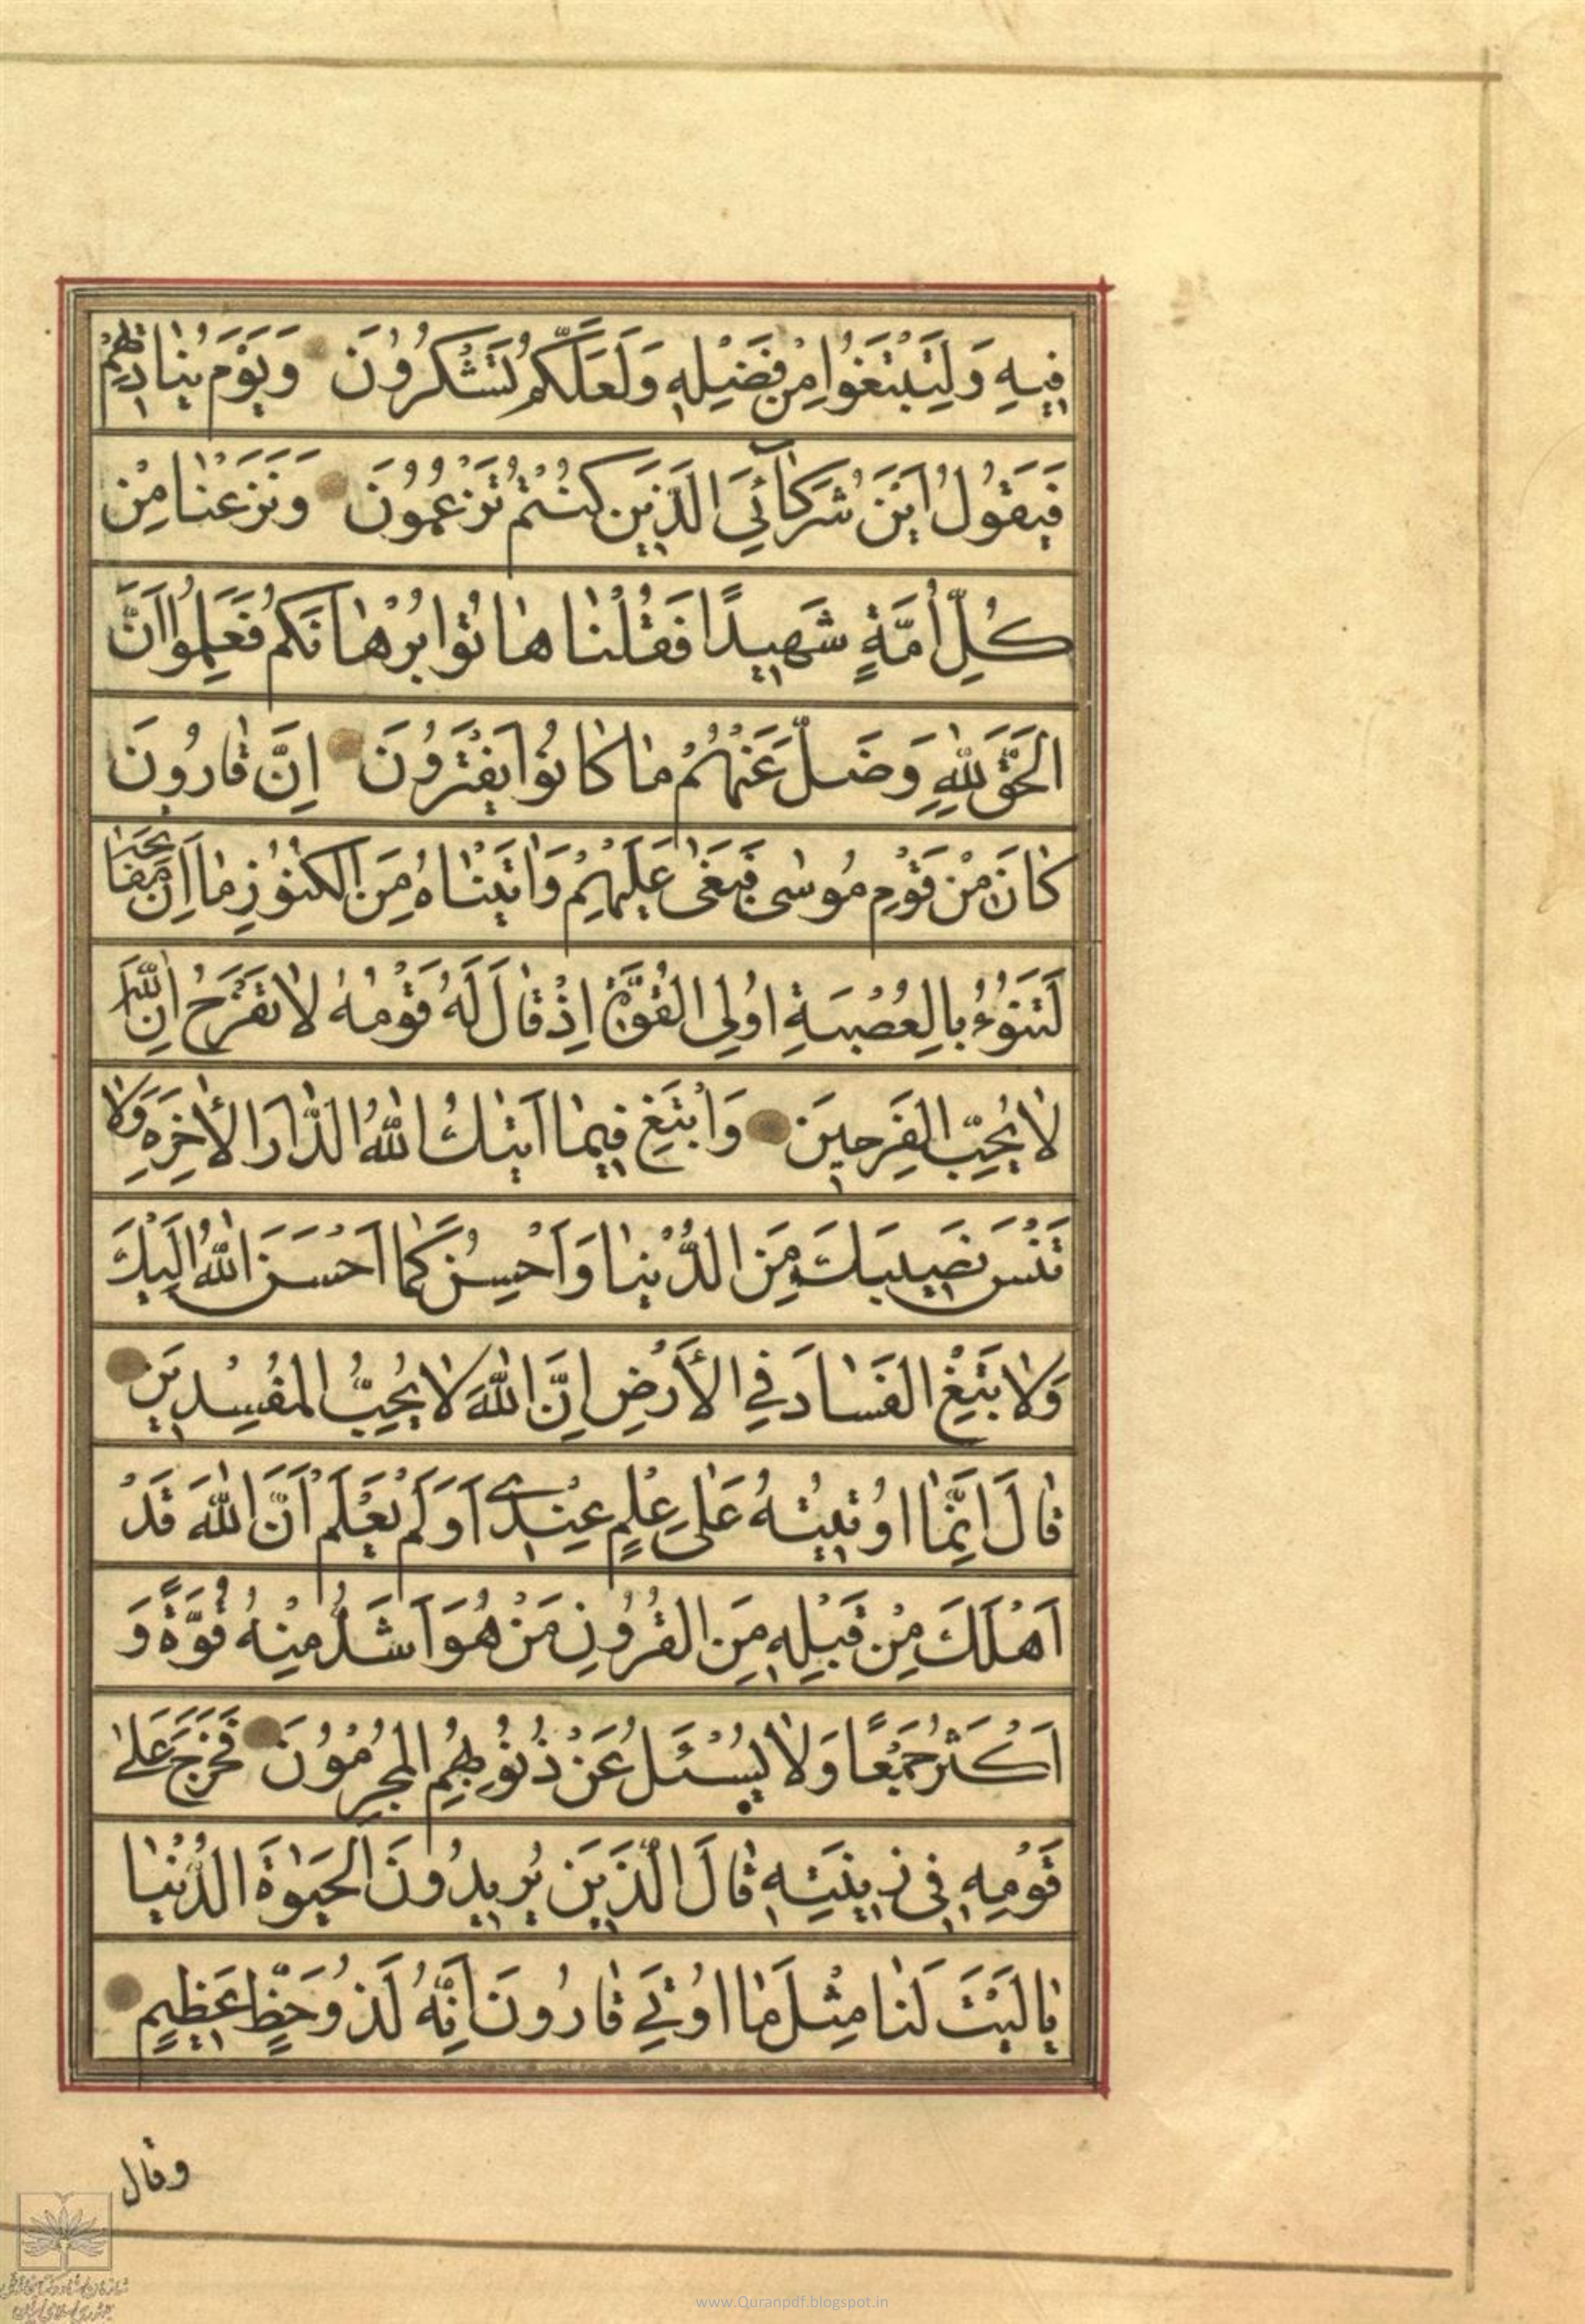 فِيهِ وَلِتَبْتَغُوا مِنْ فَضْلِهِ وَلَعَلَّكُمْ تَشْكُرُونَ وَيَوْمَ يُنَادِيهِمْ
فَيَقُولُ اَيْنَ شُرَكَآئِيَ الَّذِينَ كُنْتُمْ تَزْعُمُونَ وَنَزَعْنَا مِنْ
كُلِّ اُمَّةٍ شَهِيدًا فَقُلْنَا هَاتُوا بُرْهَانَكُمْ فَعَلِمُوا اَنَّ
الْحَقَّ لِلّٰهِ وَضَلَّ عَنْهُمْ مَا كَانُوا يَفْتَرُونَ اِنَّ قَارُونَ
كَانَ مِنْ قَوْمِ مُوسٰى فَبَغٰى عَلَيْهِمْ وَاٰتَيْنَاهُ مِنَ الْكُنُوزِ مَا اِنَّ مَفَاتِحَهُ
لَتَنُوءُ بِالْعُصْبَةِ اُولِى الْقُوَّةِ اِذْ قَالَ لَهُ قَوْمُهُ لَا تَفْرَحْ اِنَّ اللّٰهَ
لَا يُحِبُّ الْفَرِحِينَ وَابْتَغِ فِيمَا اٰتٰىكَ اللّٰهُ الدَّارَ الْاٰخِرَةَ وَلَا
تَنْسَ نَصِيبَكَ مِنَ الدُّنْيَا وَاَحْسِنْ كَمَا اَحْسَنَ اللّٰهُ اِلَيْكَ
وَلَا تَبْغِ الْفَسَادَ فِي الْاَرْضِ اِنَّ اللّٰهَ لَا يُحِبُّ الْمُفْسِدِينَ
قَالَ اِنَّمَا اُوتِيتُهُ عَلٰى عِلْمٍ عِنْدِي اَوَلَمْ يَعْلَمْ اَنَّ اللّٰهَ قَدْ
اَهْلَكَ مِنْ قَبْلِهِ مِنَ الْقُرُونِ مَنْ هُوَ اَشَدُّ مِنْهُ قُوَّةً وَ
اَكْثَرُ جَمْعًا وَلَا يُسْئَلُ عَنْ ذُنُوبِهِمُ الْمُجْرِمُونَ فَخَرَجَ عَلٰى
قَوْمِهِ فِى زِينَتِهِ قَالَ الَّذِينَ يُرِيدُونَ الْحَيٰوةَ الدُّنْيَا
يَا لَيْتَ لَنَا مِثْلَ مَا اُوتِيَ قَارُونَ اِنَّهُ لَذُو حَظٍّ عَظِيمٍ
وقال
www.Quranpdf.blogspot.in